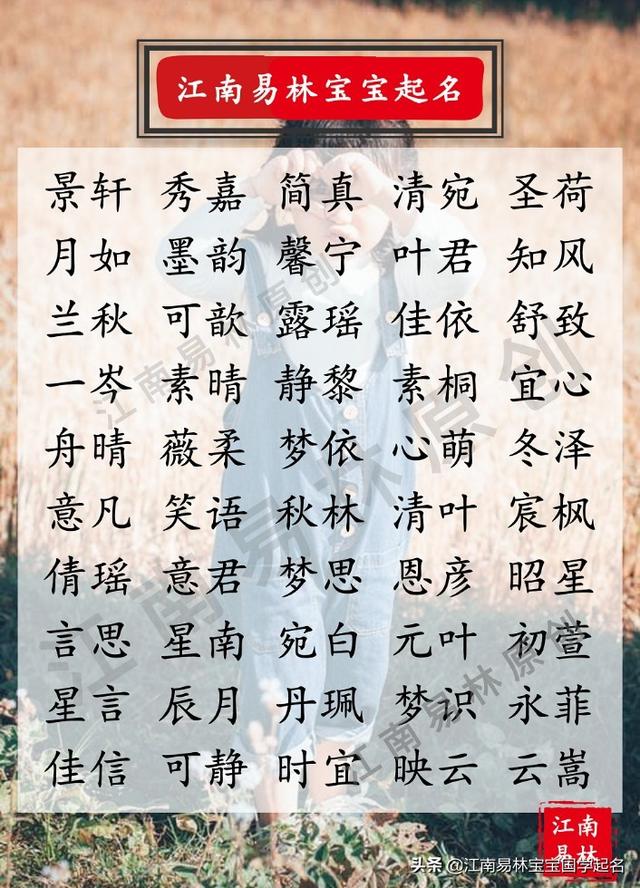 江南易林宝宝起名
景轩 秀嘉 简真 清宛 圣荷
月如 墨韵 馨宁 叶君 知风
兰秋 可歆 露瑶 佳依 舒致
一岑 素晴 静黎 素桐 宜心
舟晴 薇柔 梦依 心萌 冬泽
意凡 笑语 秋林 清叶 宸枫
倩瑶 意君 梦思 恩彦 昭星
言思 星南 宛白 元叶 初萱
星言 辰月 丹珮 梦识 永菲
佳信 可静 时宜 映云 云嵩
江南易林原创
江南易林原创
江南易林原创
江南
易林
头条 @江南易林宝宝国学起名